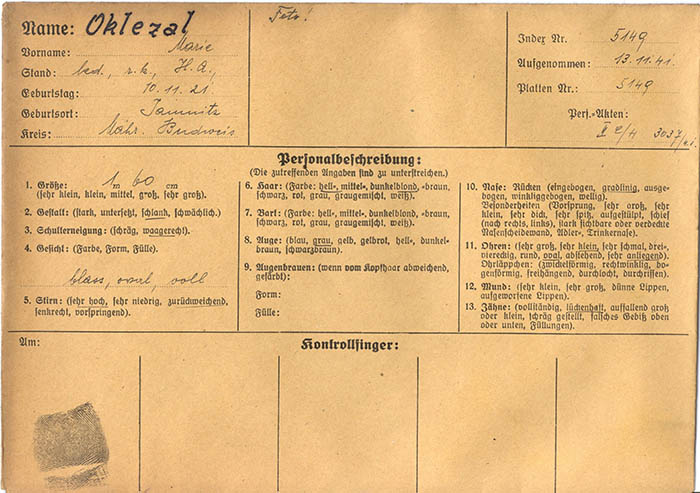 Name: Oklezal
Vorname: Marie
Stand: led., r. k., H. A.,
Geburtstag: 10.11.21
Geburtsort: Jamnitz
Kreis: Mähr. Budweis
Foto!
Index Nr. 5149
Aufgenommen: 13.11.41.
Platten Nr.: 5149
Pers.-Akten:
II e/4 3037/41.
Personalbeschreibung:
(Die zutreffenden Angaben sind zu unterstreichen.)
1. Größe: 1 m 60 cm
(sehr klein, klein, mittel, groß, sehr groß).
2. Gestalt: (stark, untersetzt, schlank, schwächlich).
3. Schulterneigung: (schräg, waagerecht).
4. Gesicht: (Farbe, Form, Fülle).
blass, oval, voll
5. Stirn: (sehr hoch, sehr niedrig, zurückweichend,
senkrecht, vorspringend).
6. Haar: (Farbe: hell-, mittel-, dunkelblond, -braun,
schwarz, rot, grau, graugemischt, weiß).
7. Bart: (Farbe: hell-, mittel-, dunkelblond, -braun,
schwarz, rot, grau, graugemischt, weiß).
8. Auge: (blau, grau, gelb, gelbrot, hell-, dunkel-
braun, schwarzbraun).
9. Augenbrauen: (wenn vom Kopfhaar abweichend,
gefärbt):
Form:
Fülle:
10. Nase: Rücken (eingebogen, gradlinig, ausge-
bogen, winkliggebogen, wellig).
Besonderheiten (Vorsprung, sehr groß, sehr
klein, sehr dick, sehr spitz, aufgestülpt, schief
(nach rechts, links), stark sichtbare oder verdeckte
Nasenscheidewand, Adler-, Trinkernase).
11. Ohren: (sehr groß, sehr klein, sehr schmal, drei-,
viereckig, rund, oval, abstehend, sehr anliegend).
Ohrläppchen: (zwickelförmig, rechtwinklig, bo-
genförmig, freihängend, durchlocht, durchrissen).
12. Mund: (sehr klein, sehr groß, dünne Lippen,
aufgeworfene Lippen).
13. Zähne: (vollständig, lückenhaft, auffallend groß
oder klein, schräg gestellt, falsches Gebiß oben
oder unten, Füllungen).
Am:
Kontrollfinger: